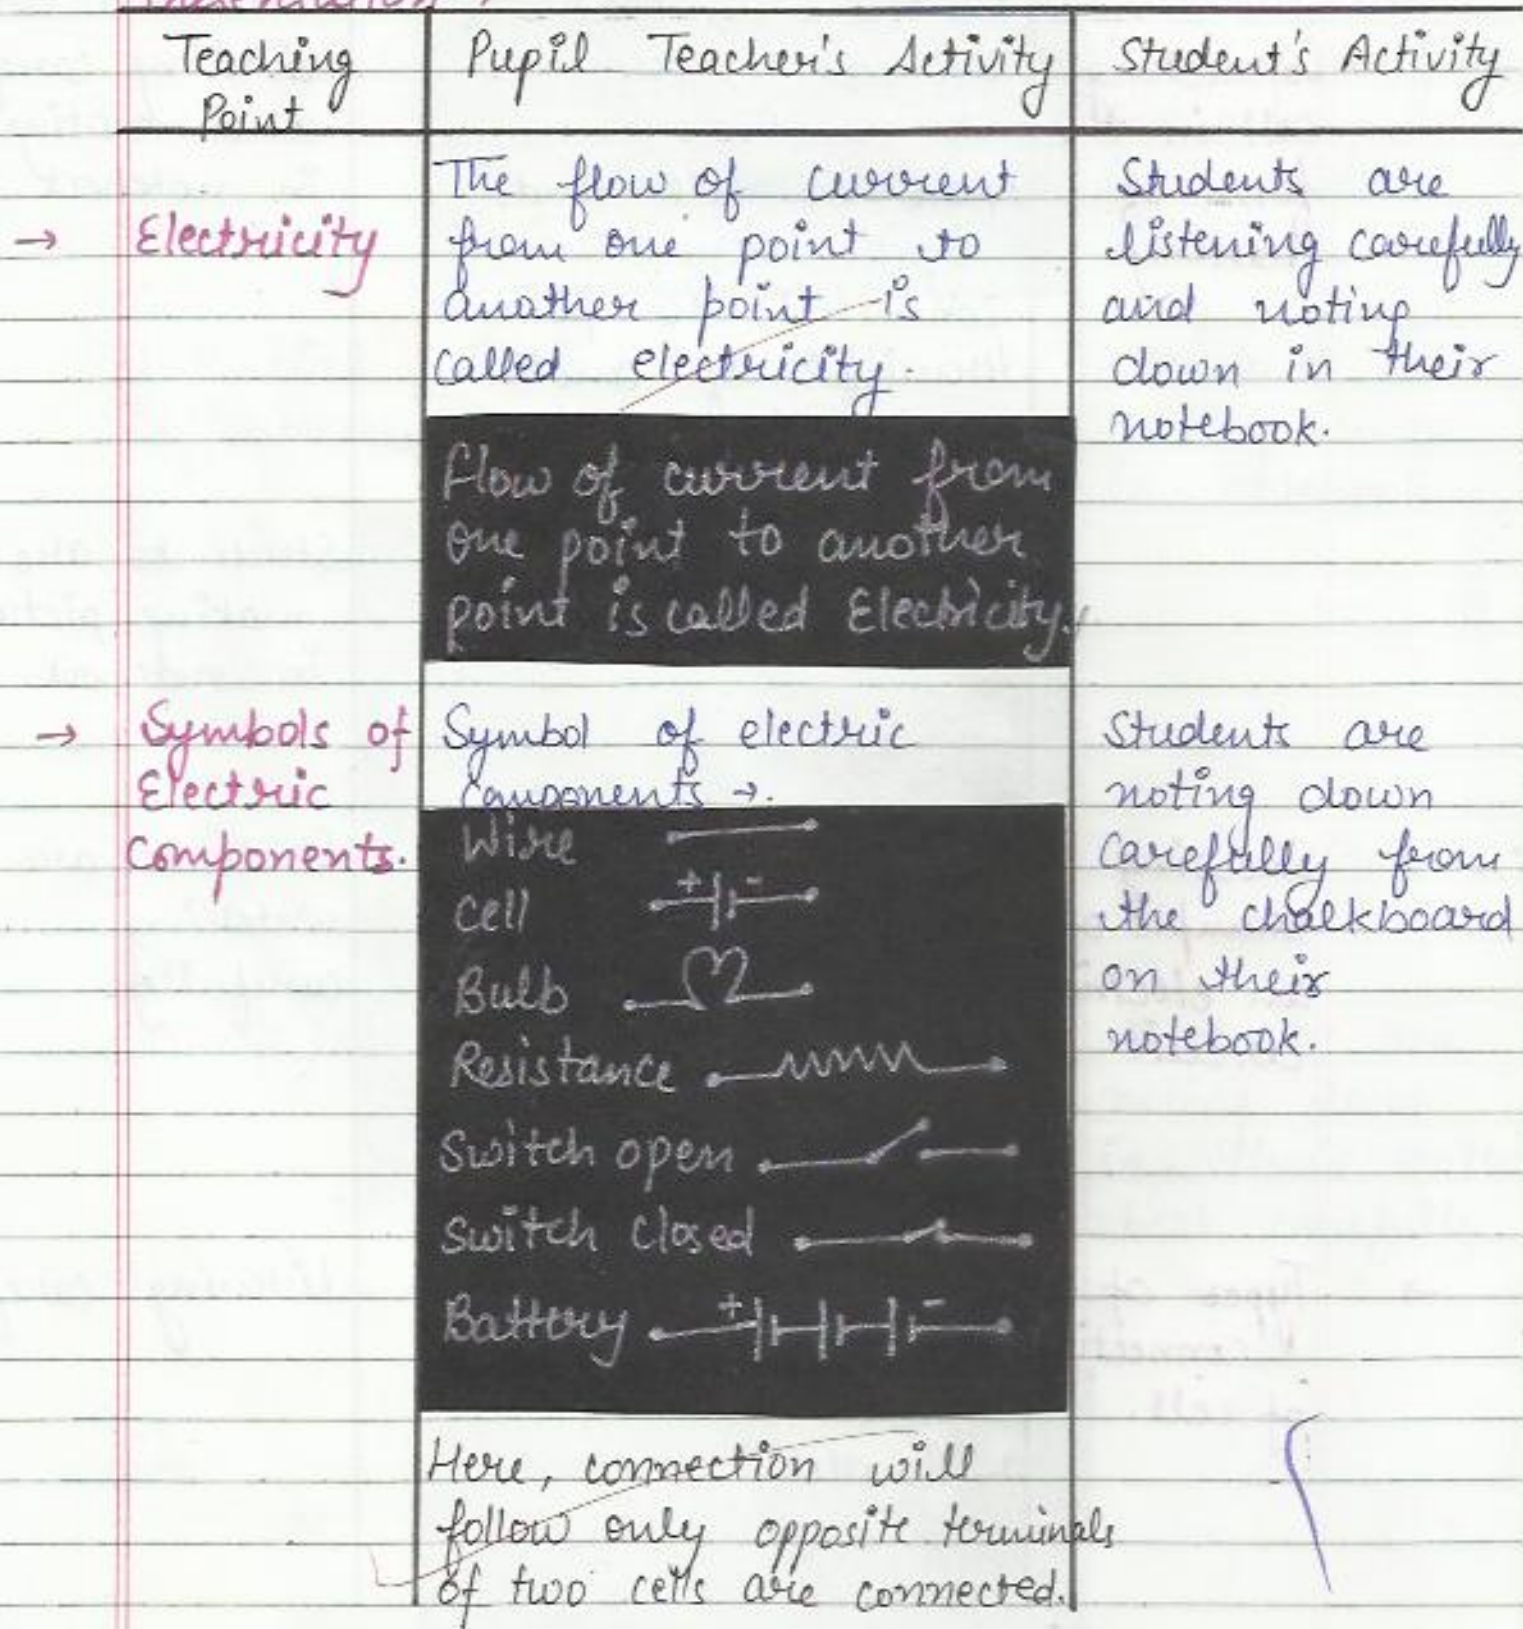 Presentation :
Teaching
Point
Pupil Teacher's Activity
Student's Activity
→ Electricity
The flow of current
from one point to
another point is
called electricity.
Flow of current from
one point to another
point is called Electricity.
Students are
listening carefully
and noting
down in their
notebook.
→ Symbols of
Electric
Components.
Symbol of electric
components →.
Wire
Cell
+ -
Bulb
Resistance
Switch open
Switch closed
Battery
+ -
Here, connection will
follow only opposite terminals
of two cells are connected.
Students are
noting down
carefully from
the chalkboard
on their
notebook.